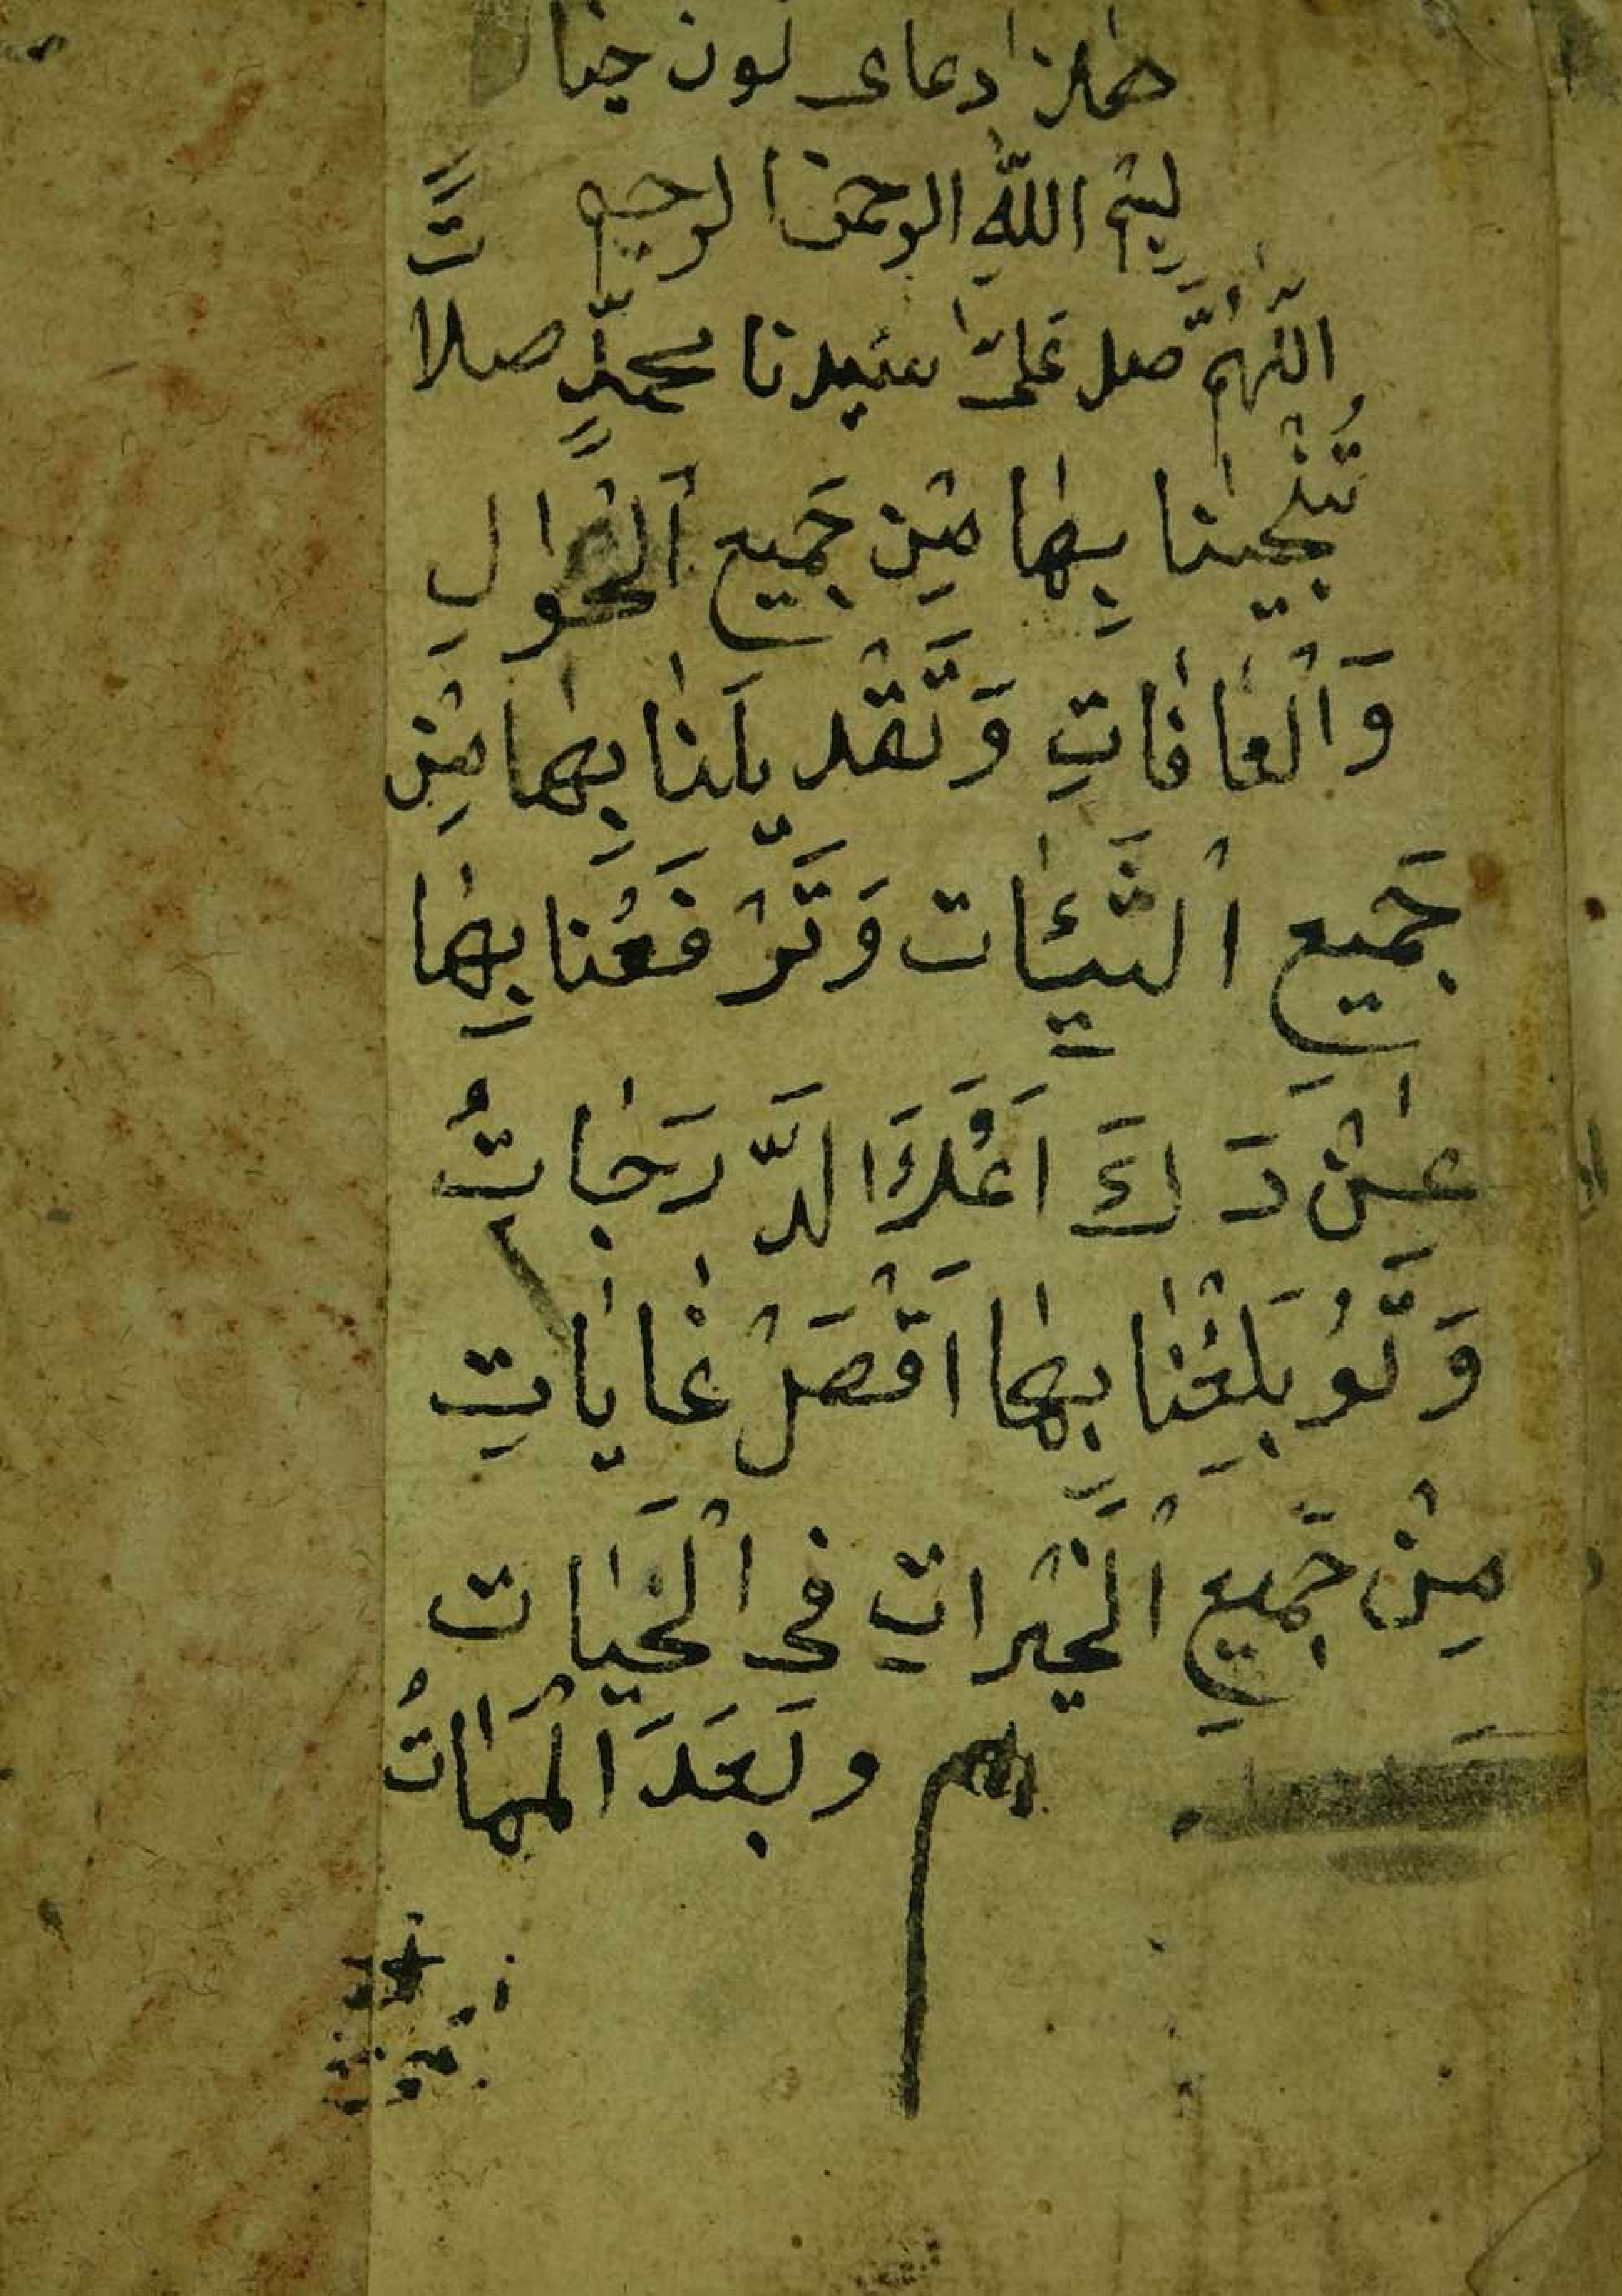 هٰلذا دعاى لون جينا
بِسْمِ اللّٰهِ الرحمن الرحيم
اللّٰهُمَّ صل عَلىٰ سَيدنا محمّدٍ صلاتً
تُنْجّينٰا بِهٰا مِنْ جَميع اَلْحوٰالِ
وَالْعٰافٰاتِ وَتَّقْد يلَنٰا بِهٰا مِنْ
جَميعِ ٱلسَّيِّئٰات وَتَّرْفَعُنا بِهٰا
عٰنْ دَ كَ اَعْلَا لدَّرَجٰاتُ
وَتَّوُ بَلِغْنٰا بِهٰا اَقْصَلْ غٰايٰاتِ
مِنْ جَميعِ ٱلْخَيْراتِ فى الْحَيٰات
و بَعَدَ الْمَمٰاتُ